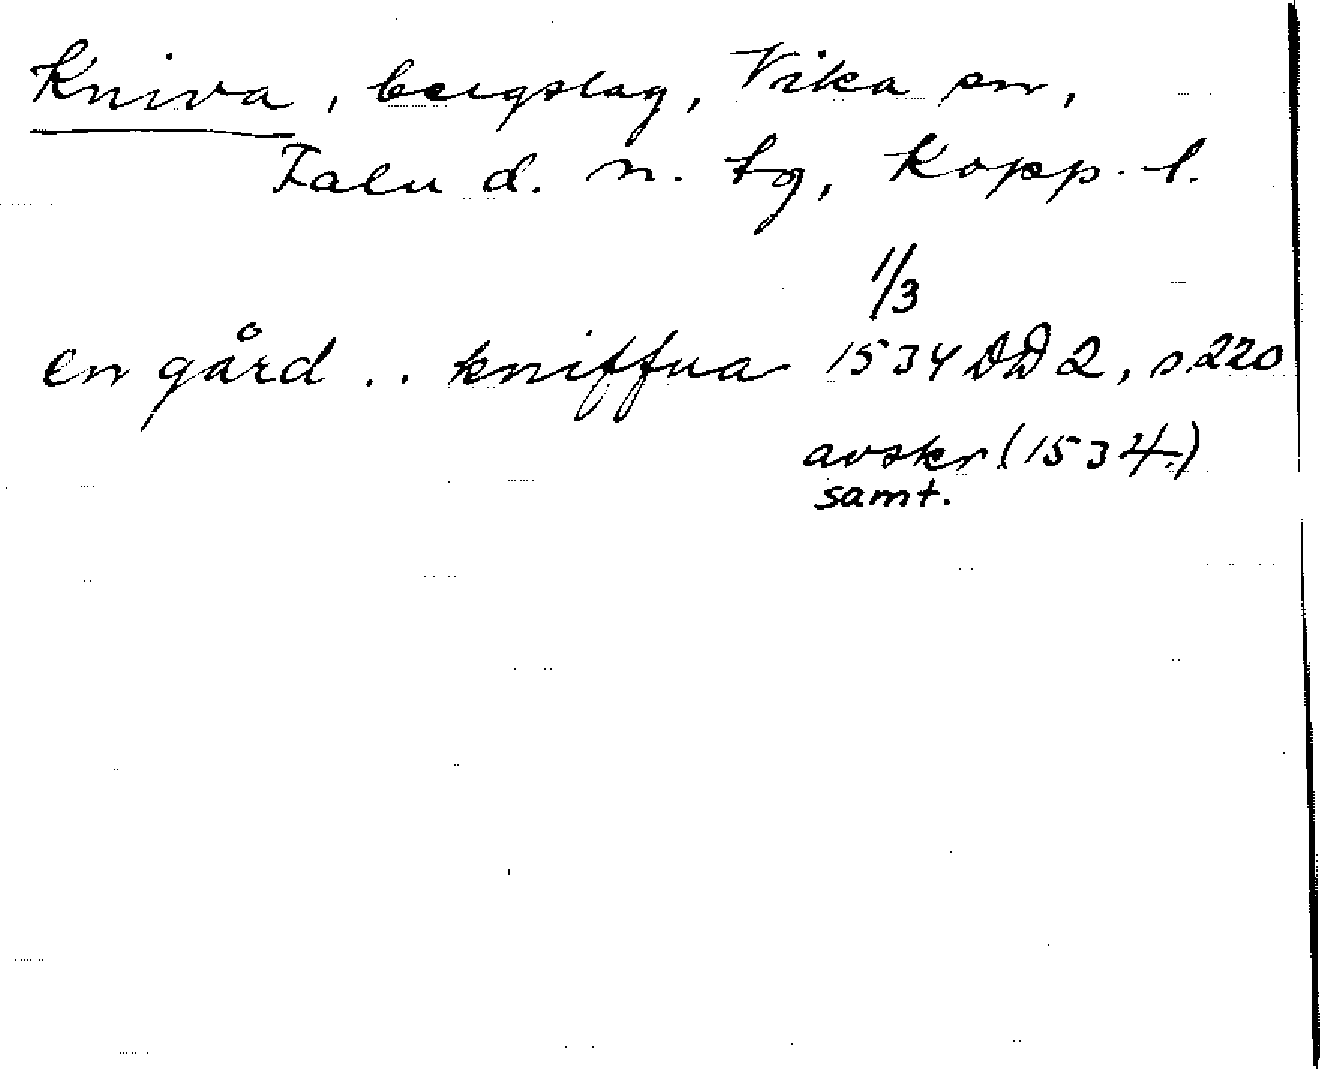 Kniva, bergslag, Vika sn,
Falu d. n. tg, Kopp. l.
1/3
en gård .. kniffua 1534 DD 2, s 220
avskr (1534)
samt.